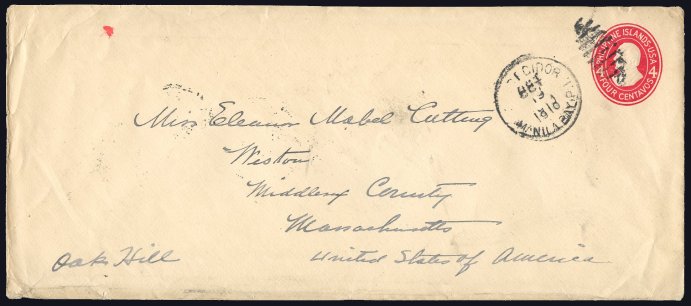 PHILIPPINE ISLANDS U.S.A.
4 4
FOUR CENTAVOS
MANILA BAY, P.I.
Miss Eleanor Mabel Cutting
Weston
Middlesex County
Massachusetts
Oak Hill
United States of America